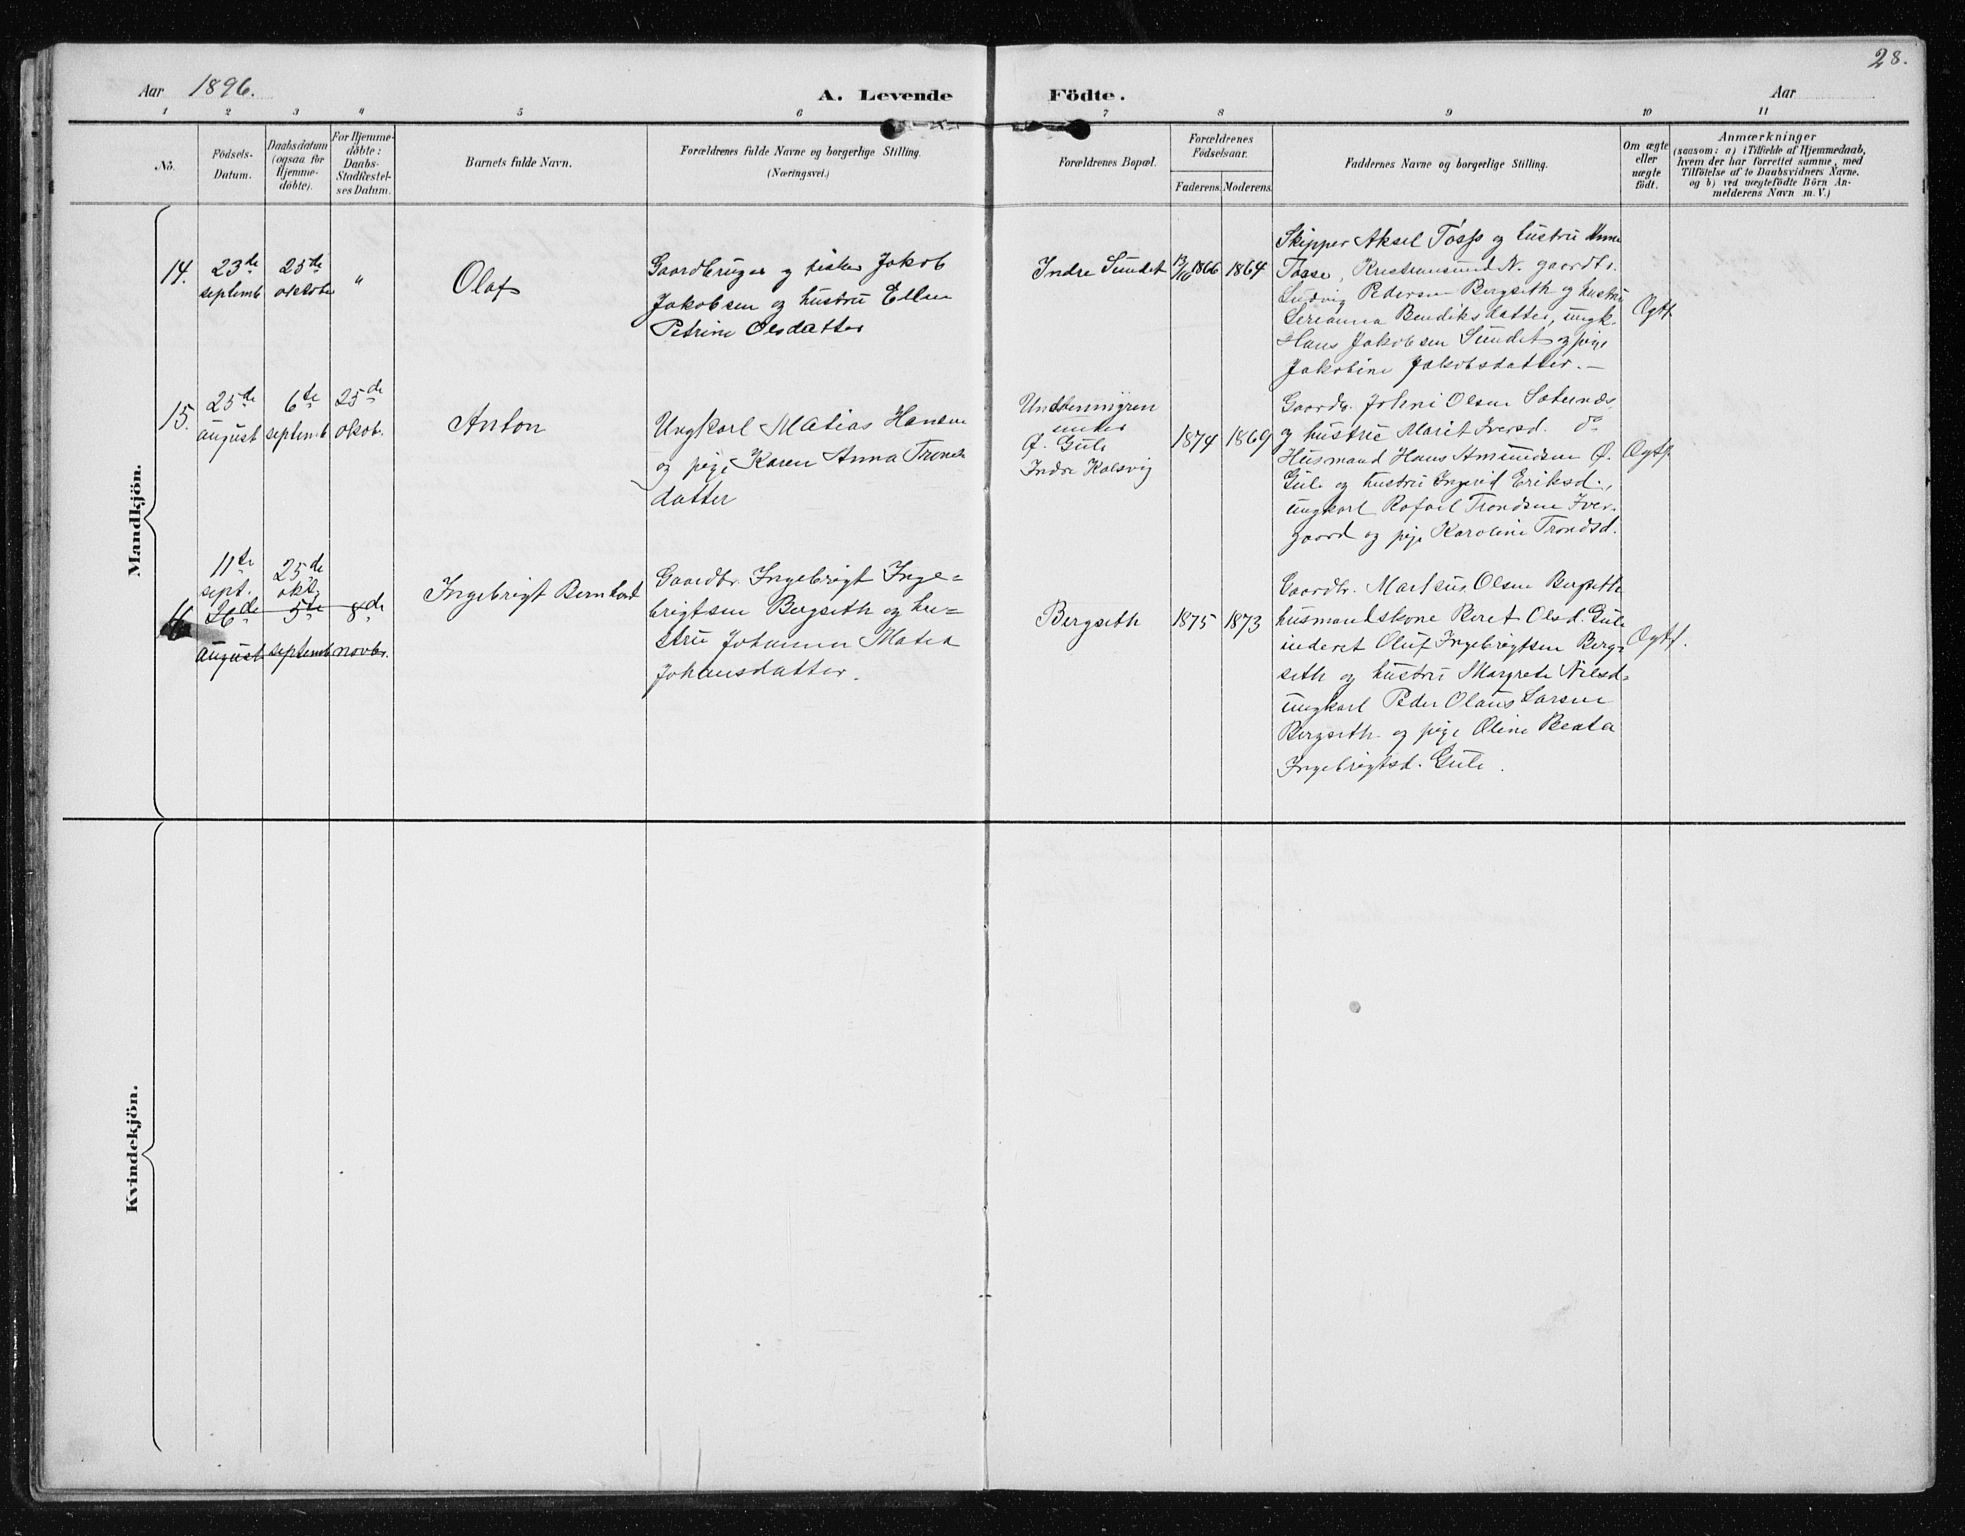 28.
Aar 1896.
A. Levende Födte.
Aar
1 2 3 4 5 6 7 8 9 10 11
No.
Födsels-
Datum.
Daabsdatum
(ogsaa för
Hjemme-
döbte).
For Hjemme-
döbte:
Daabs-
Stadfæstel-
ses Datum.
Barnets fulde Navn.
Forældrenes fulde Navne og borgerlige Stilling.
(Næringsvei.)
Forældrenes Bopæl.
Forældrenes
Födselsaar.
Faderens. Moderens.
Faddernes Navne og borgerlige Stilling.
Om ægte
eller
uægte
födt.
Anmærkninger
(saasom: a) i Tilfælde af Hjemmedaab,
hvem der har forrettet samme, med
Tilföielse af to Daabsvidners Navne.
og b) ved uægtefödte Börn An-
melderens Navn m. V.)
Mandkjön.
14.
23de
septemb
25de
oktober
"
Olaf
Gaardbruger og fisker Jakob
Jakobsen og hustru Ellen
Petrine Olsdatter
Indre Sundet
13/10 1866
1864
Skipper Aksel Tøsse og hustru Anne
Tøsse, Kristiansund N. gaardbr.
Ludvig Pedersen Bergseth og hustru
Serianna Bendiksdatter, ungk.
Hans Jakobsen Sundet og pige
Jakobine Jakobsdatter. —
Ægtf.
15.
25de
august
6te
septemb
25de
oktob.
Anton
Ungkarl Matias Hansen
og pige Karen Anna Tronds
datter
under
Ø. Gule
Indre Kalsvig
1874
1869
Gaardb. Johni Olsen Sæternæs
og hustru Marit Iversd. do
Husmand Hans Amundsen Ø.
Gule og hustru Ingrid Eriksd.,
ungkarl Rafael Trondsen Iver-
gaard og pige Karoline Trondsd.
11te
sept.
26de
august
25de
okt.
5te
septemb
8de
novbr.
Ingebrigt Bernhard
Gaardbr. Ingebrigt Inge-
brigtsen Bergseth og hu-
stru Johanna Matea
Johansdatter.
Bergseth
1875
1873
Gaardbr. Markus Olsen Bergseth
husmandskone Beret Olsd. Gule
inderst Oluf Ingebrigtsen Berg-
seth og hustru Margrete Nilsd.
ungkarl Peder Olaus Larsen
Bergseth og pige Oline Beata
Ingebrigtsd. Gule.
Ægtf.
Kvindekjön.